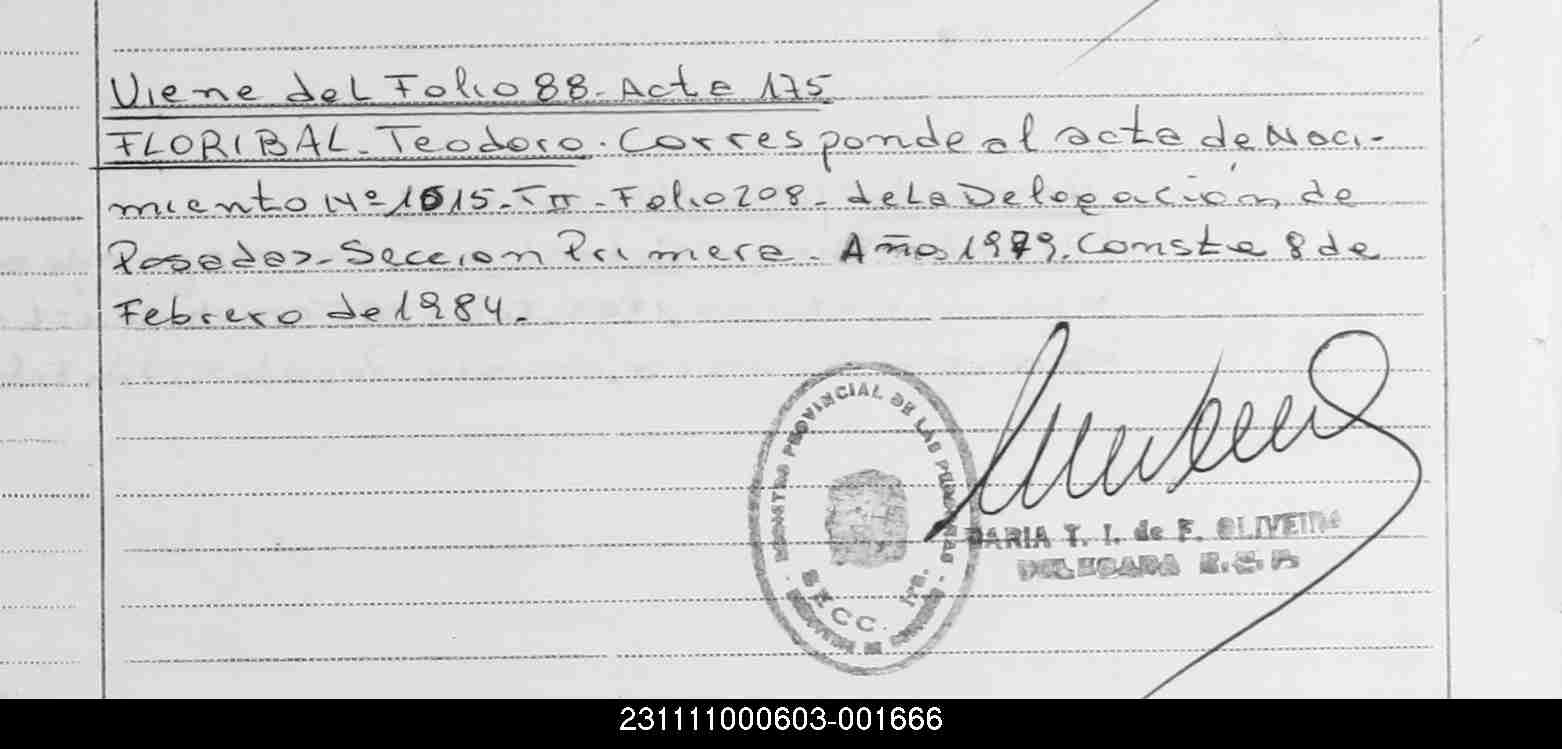 Viene del Folio 88 - Acta 175
FLORIBAL - Teodoro. Corresponde al acta de Naci-
miento Nº 1015 - TII - Folio 208 - de La Delegación de
Posadas - Seccion Primera. Año 1979. Conste 8 de
Febrero de 1984.-
REGISTRO PROVINCIAL DE LAS PERSONAS
SECC. 1ra.
MARIA T. I. de F. OLIVEIRA
DELEGADA R.S.P.
231111000603-001666